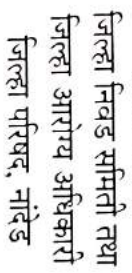 जिल्हा निवड समिती तथा
जिल्हा आरोग्य अधिकारी
जिल्हा परिषद, नांदेड